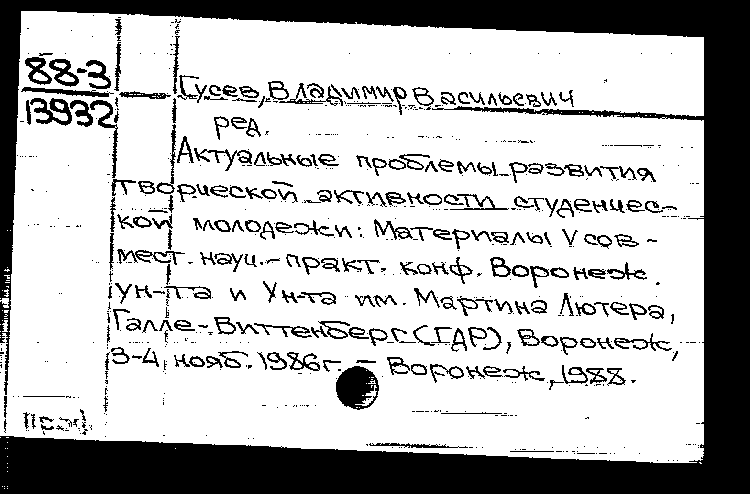 88-3
13932
Гусев, Владимир Васильевич
ред.
Актуальные проблемы развития
творческой активности студенчес-
кой молодежи: Материалы V сов-
мест. науч.-практ. конф. Воронеж.
ун-та и Ун-та им. Мартина Лютера,
Галле-Виттенберг (ГДР), Воронеж,
3-4 нояб. 1986г. - Воронеж, 1988.
Проф.